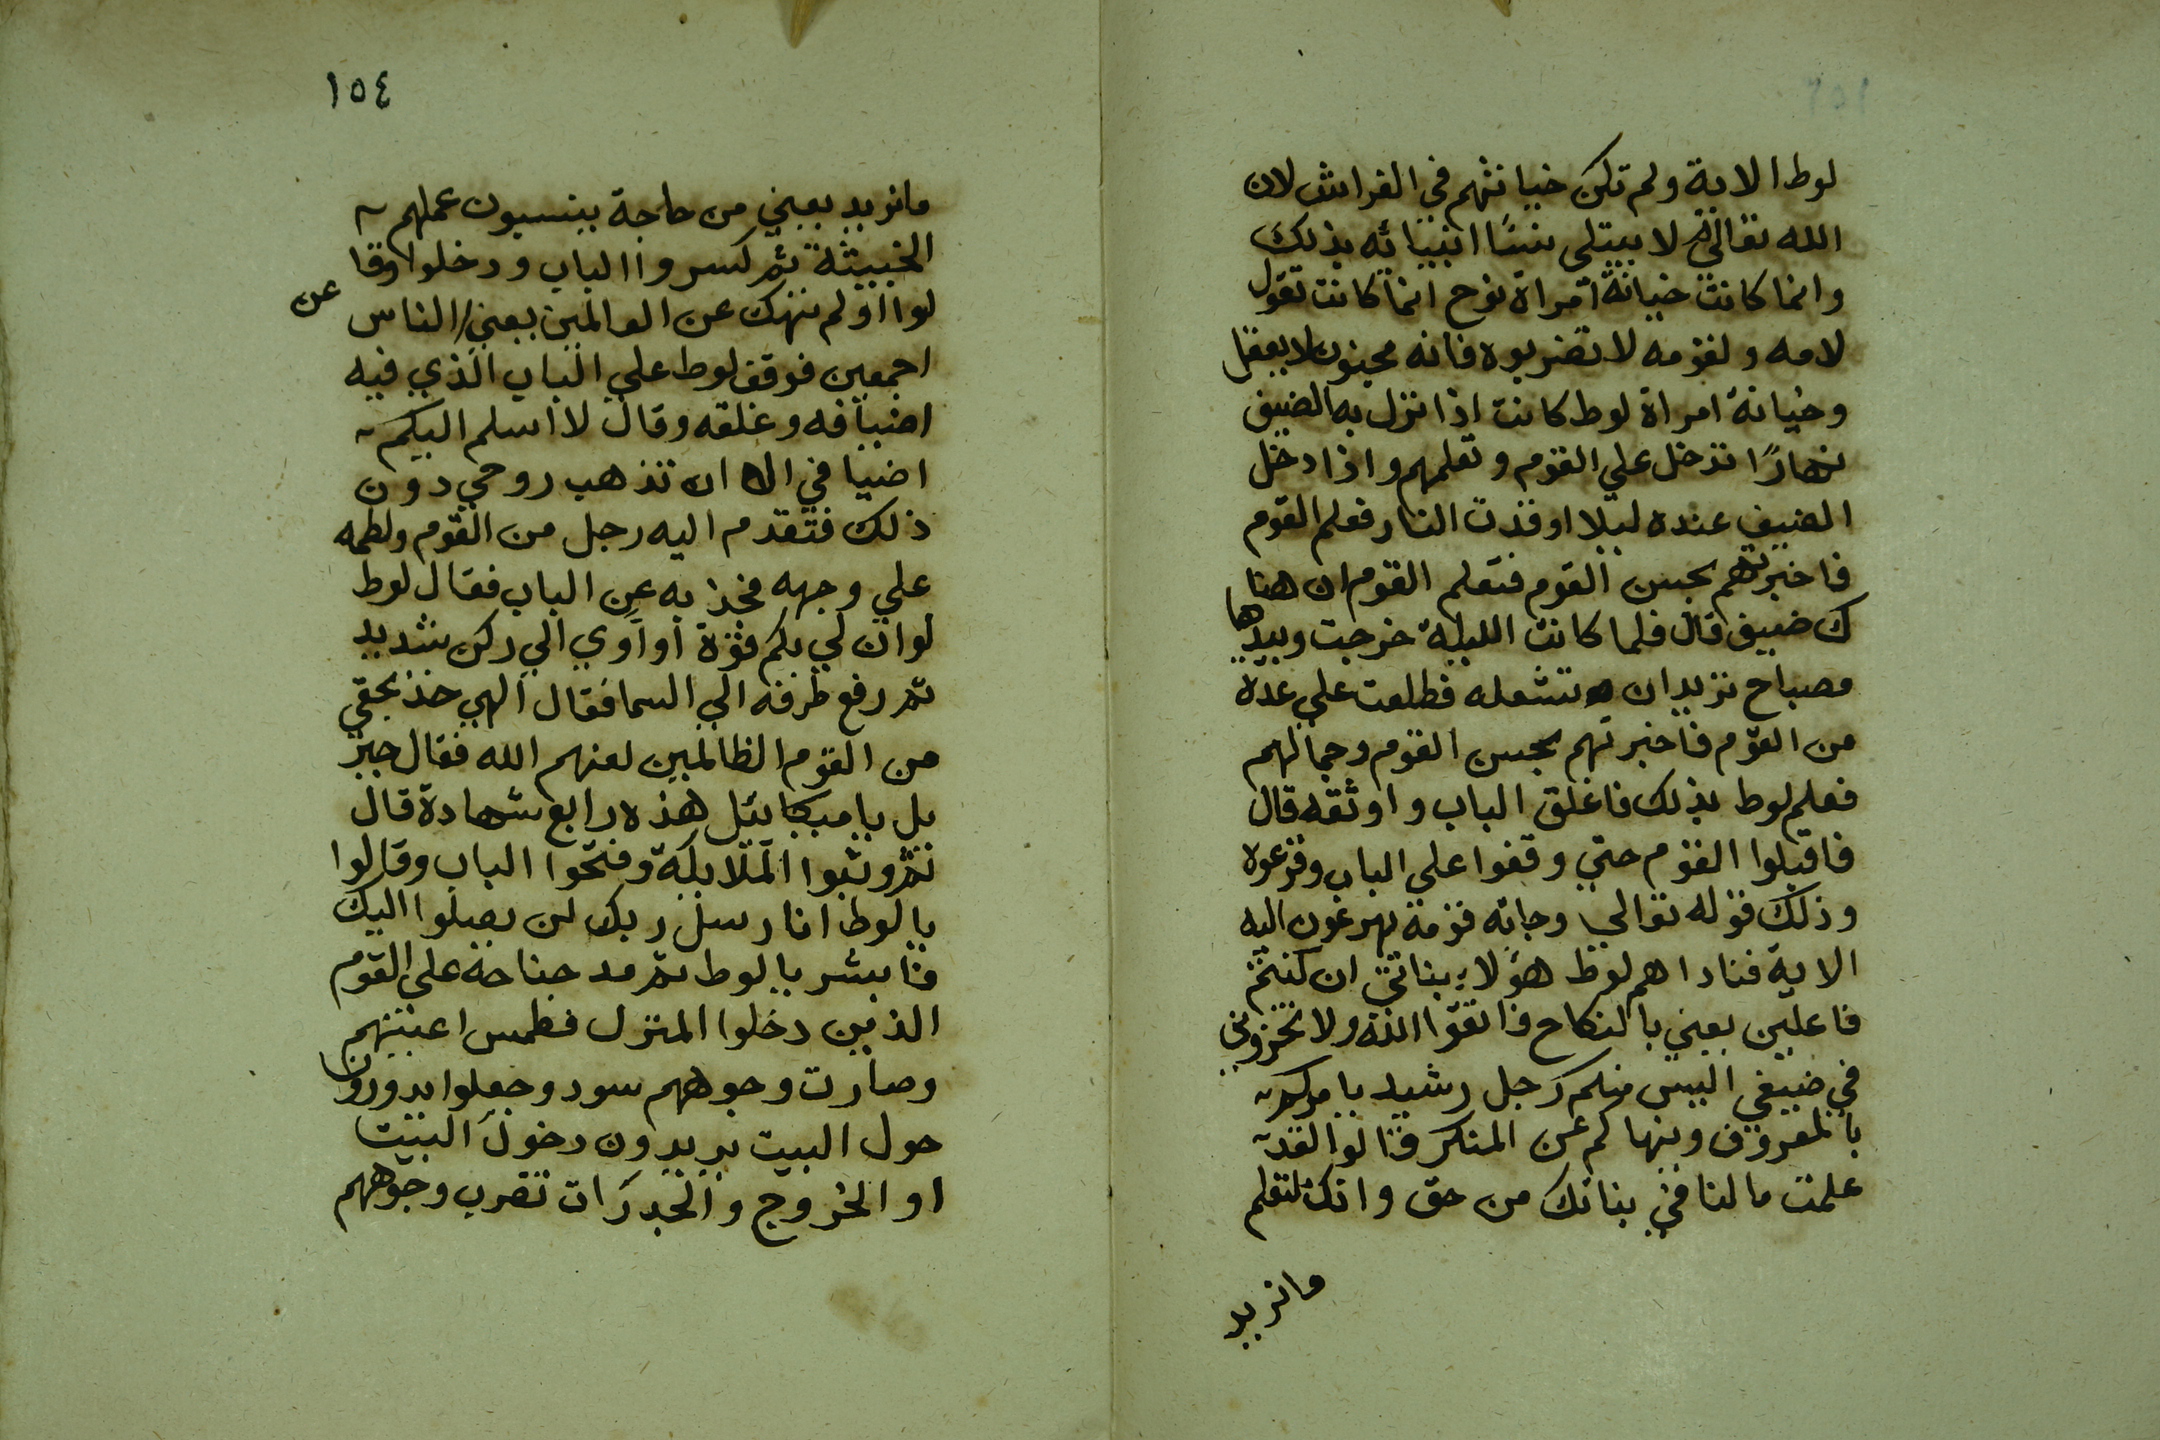 لوط الاية ولم تكن خيانتهم في الفراش لان
الله تعالى لا يبتلي نسا انبيائه بذلك
وانما كانت خيانة امراة نوح انما كانت تقول
لامه ولقومه لا تضربوه فانه مجنون لا يعقل
وخيانة امراة لوط كانت اذا نزل به الضيف
نهارًا تدخل علي القوم وتعلمهم واذا دخل
الضيف عنده ليلا اوقدت النار فعلم القوم
فاخبرتهم بحسن القوم فتعلم القوم ان هنا
ك ضيف قال فلما كانت الليلة خرجت وبيدها
مصباح تريد ان تشعله فطلعت علي عدة
من القوم فاخبرتهم بحسن القوم وجمالهم
فعلم لوط بذلك فاغلق الباب واوثقه قال
فاقبلوا القوم حتي وقفوا علي الباب وقرعوه
وذلك قوله تعالي وجائه قومه يهرعون اليه
الاية فناداهم لوط هؤلاء بناتي ان كنتم
فاعلين يعني بالنكاح فاتقوا الله ولا تخزوني
في ضيفي اليس منكم رجل رشيد يامركم
بالمعروف وينهاكم عن المنكر فقالوا لقد
علمت ما لنا في بناتك من حق وانك لتعلم
ما نريد
١٥٤
ما نريد يعني من حاجة ينسبون عملهم
الخبيثة ثم كسروا الباب ودخلوا وقا
لوا اولم ننهك عن العالمين يعني عن الناس
اجمعين فوقف لوط علي الباب الذي فيه
اضيافه وغلقه وقال لا اسلم اليكم
اضيافي الا ان تذهب روحي دون
ذلك فتقدم اليه رجل من القوم ولطمه
علي وجهه فجذبه عن الباب فقال لوط
لوان لي بكم قوة او آوي الي ركن شديد
ثم رفع طرفه الي السما فقال الهي خذ بحقي
من القوم الظالمين لعنهم الله فقال جبر
يل يا ميكائيل هذه رابع شهادة قال
ثم وثبوا الملايكة وفتحوا الباب وقالوا
يا لوط انا رسل ربك لن يصلوا اليك
فابشر يا لوط ثم مد جناحه علي القوم
الذين دخلوا المنزل فطمس اعينهم
وصارت وجوههم سود وجعلوا يدورون
حول البيت يريدون دخول البيت
او الخروج والجدرات تضرب وجوههم